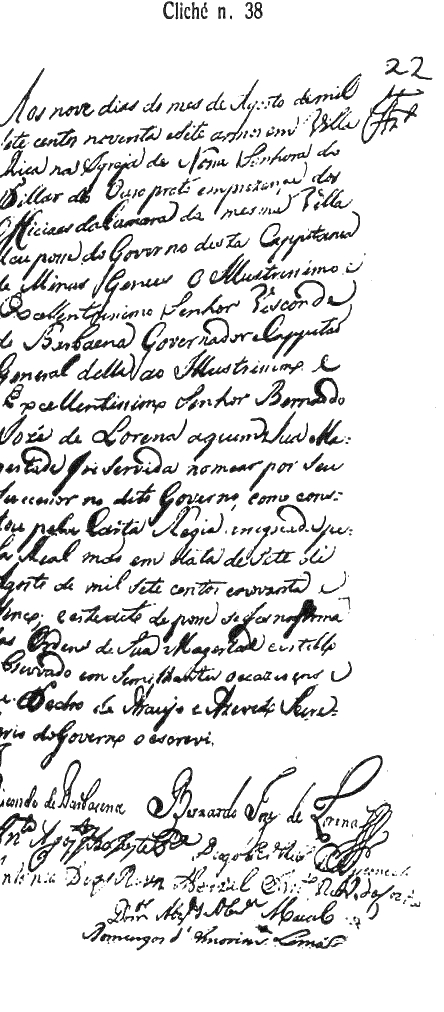 Cliché n. 38
22
Aos nove dias do mes de Agosto de mil
sete centos noventa e sete annos em Villa
Rica na Igreja de Nossa Senhora do
Pillar do Ouro preto em prezença dos
Officiaes da Camara da mesma Villa
deu posse do Governo desta Cappitania
de Minas Geraes O Illustrissimo e
Excellentissimo Senhor Visconde
de Barbacena Governador e Cappitão
General della ao Illustrissimo e
Excellentissimo Senhor Bernardo
Jozé de Lorena a quem Sua Ma-
gestade foi servida nomear por seu
successor no dito Governo, como cons-
tou pela Carta Regia, pe-
la Real mão em data de sete de
Agosto de mil sete centos e noventa e
sinco, e este acto de posse se fes na forma
das Ordens de Sua Magestade e estillo
observado em semilhantes occazioens e
eu Pedro de Araujo e Azevedo Secre-
tario do Governo o escrevi.
Visconde de Barbacena Bernardo Joze de Lorena
Antonio
Maciel
Domingos d'Amorim Lima